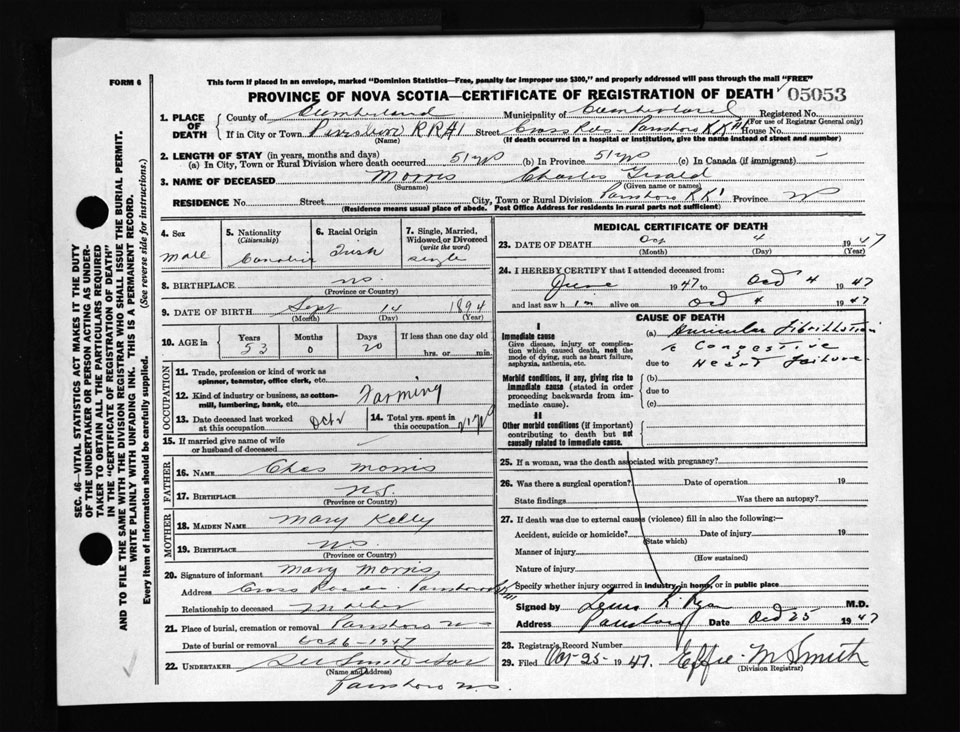 FORM 6
This form if placed in an envelope, marked "Dominion Statistics—Free, penalty for improper use $300," and properly addressed will pass through the mail "FREE"
PROVINCE OF NOVA SCOTIA—CERTIFICATE OF REGISTRATION OF DEATH 05053
SEC. 46—VITAL STATISTICS ACT MAKES IT THE DUTY
OF THE UNDERTAKER OR PERSON ACTING AS UNDER-
TAKER TO OBTAIN ALL THE PARTICULARS REQUIRED
IN THE "CERTIFICATE OF REGISTRATION OF DEATH"
AND TO FILE THE SAME WITH THE DIVISION REGISTRAR WHO SHALL ISSUE THE BURIAL PERMIT.
WRITE PLAINLY WITH UNFADING INK. THIS IS A PERMANENT RECORD.
Every item of information should be carefully supplied. (See reverse side for instructions.)
1. PLACE OF DEATH
County of Cumberland Municipality of Cumberland Registered No.
(For use of Registrar General only)
If in City or Town RR#1 Street Cross Rds Parrsboro RR#1 House No.
(Name) (If death occurred in a hospital or institution, give the name instead of street and number)
2. LENGTH OF STAY (in years, months and days)
(a) In City, Town or Rural Division where death occurred 51 yrs (b) In Province 51 yrs (c) In Canada (if immigrant) -
3. NAME OF DECEASED Morris Charles Gerald
(Surname) (Given name or names)
RESIDENCE No. Street City, Town or Rural Division Parrsboro RR1 Province
(Residence means usual place of abode. Post Office Address for residents in rural parts not sufficient)
4. Sex
male
5. Nationality
(Citizenship)
Canadian
6. Racial Origin
Irish
7. Single, Married, Widowed or Divorced
(write the word)
single
8. BIRTHPLACE N.S.
(Province or Country)
9. DATE OF BIRTH Sept 14 1894
(Month) (Day) (Year)
10. AGE in
Years Months Days If less than one day old
53 0 20 hrs. or min.
OCCUPATION
11. Trade, profession or kind of work as
spinner, teamster, office clerk, etc.
12. Kind of industry or business, as cotton-
mill, lumbering, bank, etc. Farming
13. Date deceased last worked
at this occupation
14. Total yrs. spent in
this occupation
15. If married give name of wife
or husband of deceased
FATHER
16. NAME Chas Morris
17. BIRTHPLACE N.S.
(Province or Country)
MOTHER
18. MAIDEN NAME Mary Kelly
19. BIRTHPLACE N.S.
(Province or Country)
20. Signature of informant Mary Morris
Address Cross Roads Parrsboro
Relationship to deceased Mother
21. Place of burial, cremation or removal Parrsboro N.S.
Date of burial or removal Oct 6-1947
22. UNDERTAKER
(Name and Address)
Parrsboro N.S.
MEDICAL CERTIFICATE OF DEATH
23. DATE OF DEATH Oct 4 1947
(Month) (Day) (Year)
24. I HEREBY CERTIFY that I attended deceased from:
June 1947 to Oct 4 1947
and last saw him alive on Oct 4 1947
CAUSE OF DEATH
I
Immediate cause
Give disease, injury or complica-
tion which caused death, not the
mode of dying, such as heart failure,
asphyxia, asthenia, etc.
(a) Auricular Fibrillation
& Congestive
due to Heart Failure
Morbid conditions, if any, giving rise to
immediate cause (stated in order
proceeding backwards from im-
mediate cause).
(b)
due to
(c)
II
Other morbid conditions (if important)
contributing to death but not
causally related to immediate cause.
25. If a woman, was the death associated with pregnancy?
26. Was there a surgical operation? Date of operation 19
State findings Was there an autopsy?
27. If death was due to external causes (violence) fill in also the following:—
Accident, suicide or homicide? Date of injury 19
(State which)
Manner of injury
(How sustained)
Nature of injury
Specify whether injury occurred in industry, in home, or in public place
Signed by M.D.
Address Parrsboro Date Oct 25 1947
28. Registrar's Record Number
29. Filed Oct-25-1947. Effie M Smith
(Division Registrar)